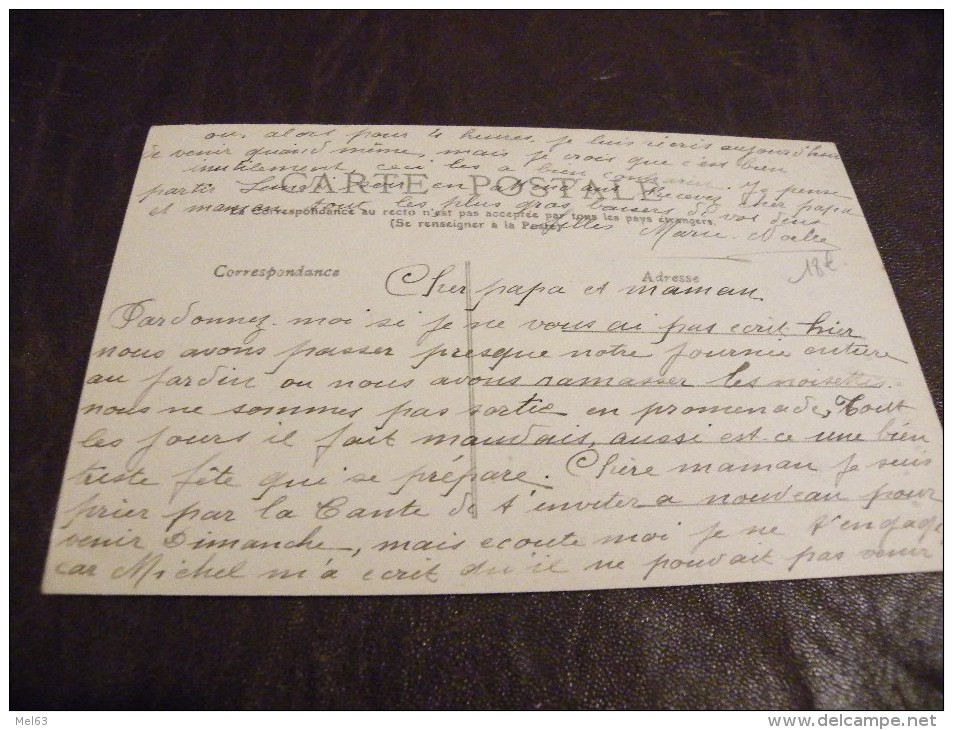 ou, alors pour 4 heures, je lui écris aujourd'hui
de venir quand même, mais je crois que c'est bien
inutilement ceci les a bien. Je pense
partir Lundi en attendant Recevez cher papa
et maman tout les plus gros baisers de vos deux
filles Marie-Noelle
CARTE POSTALE
La Correspondance au recto n'est pas acceptée par tous les pays étrangers.
(Se renseigner à la Poste)
18€
Correspondance
Adresse
Cher papa et maman
Pardonnez-moi si je ne vous ai pas ecrit hier
nous avons passer presque notre journée entière
au jardin ou nous avons ramasser les noisettes.
nous ne sommes pas sortie en promenade, Tout
les jours il fait mauvais, aussi est-ce une bien
triste fête qui se prépare. Chère maman je suis
prier par la Tante de t'inviter a nouveau pour
venir Dimanche, mais ecoute moi je ne t'engage
car Michel m'a ecrit qu'il ne pouvait pas venir
Mel63
www.delcampe.net